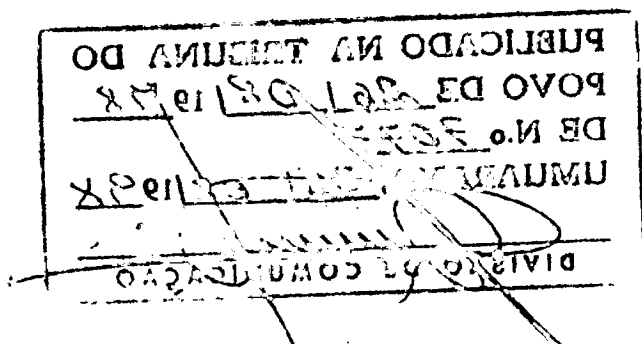 PUBLICADO NA TRIBUNA DO
POVO DE 26/ 08/ 19 98
DE N.o
UMUARAMA /19 98
DIVISÃO DE COMUNICAÇÃO